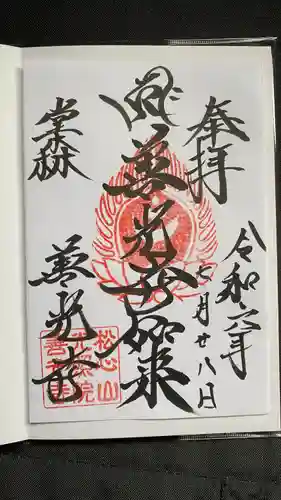 奉拝
令和六年
七月廿八日
善光寺如来
棠林
善光寺
松心山
善光寺